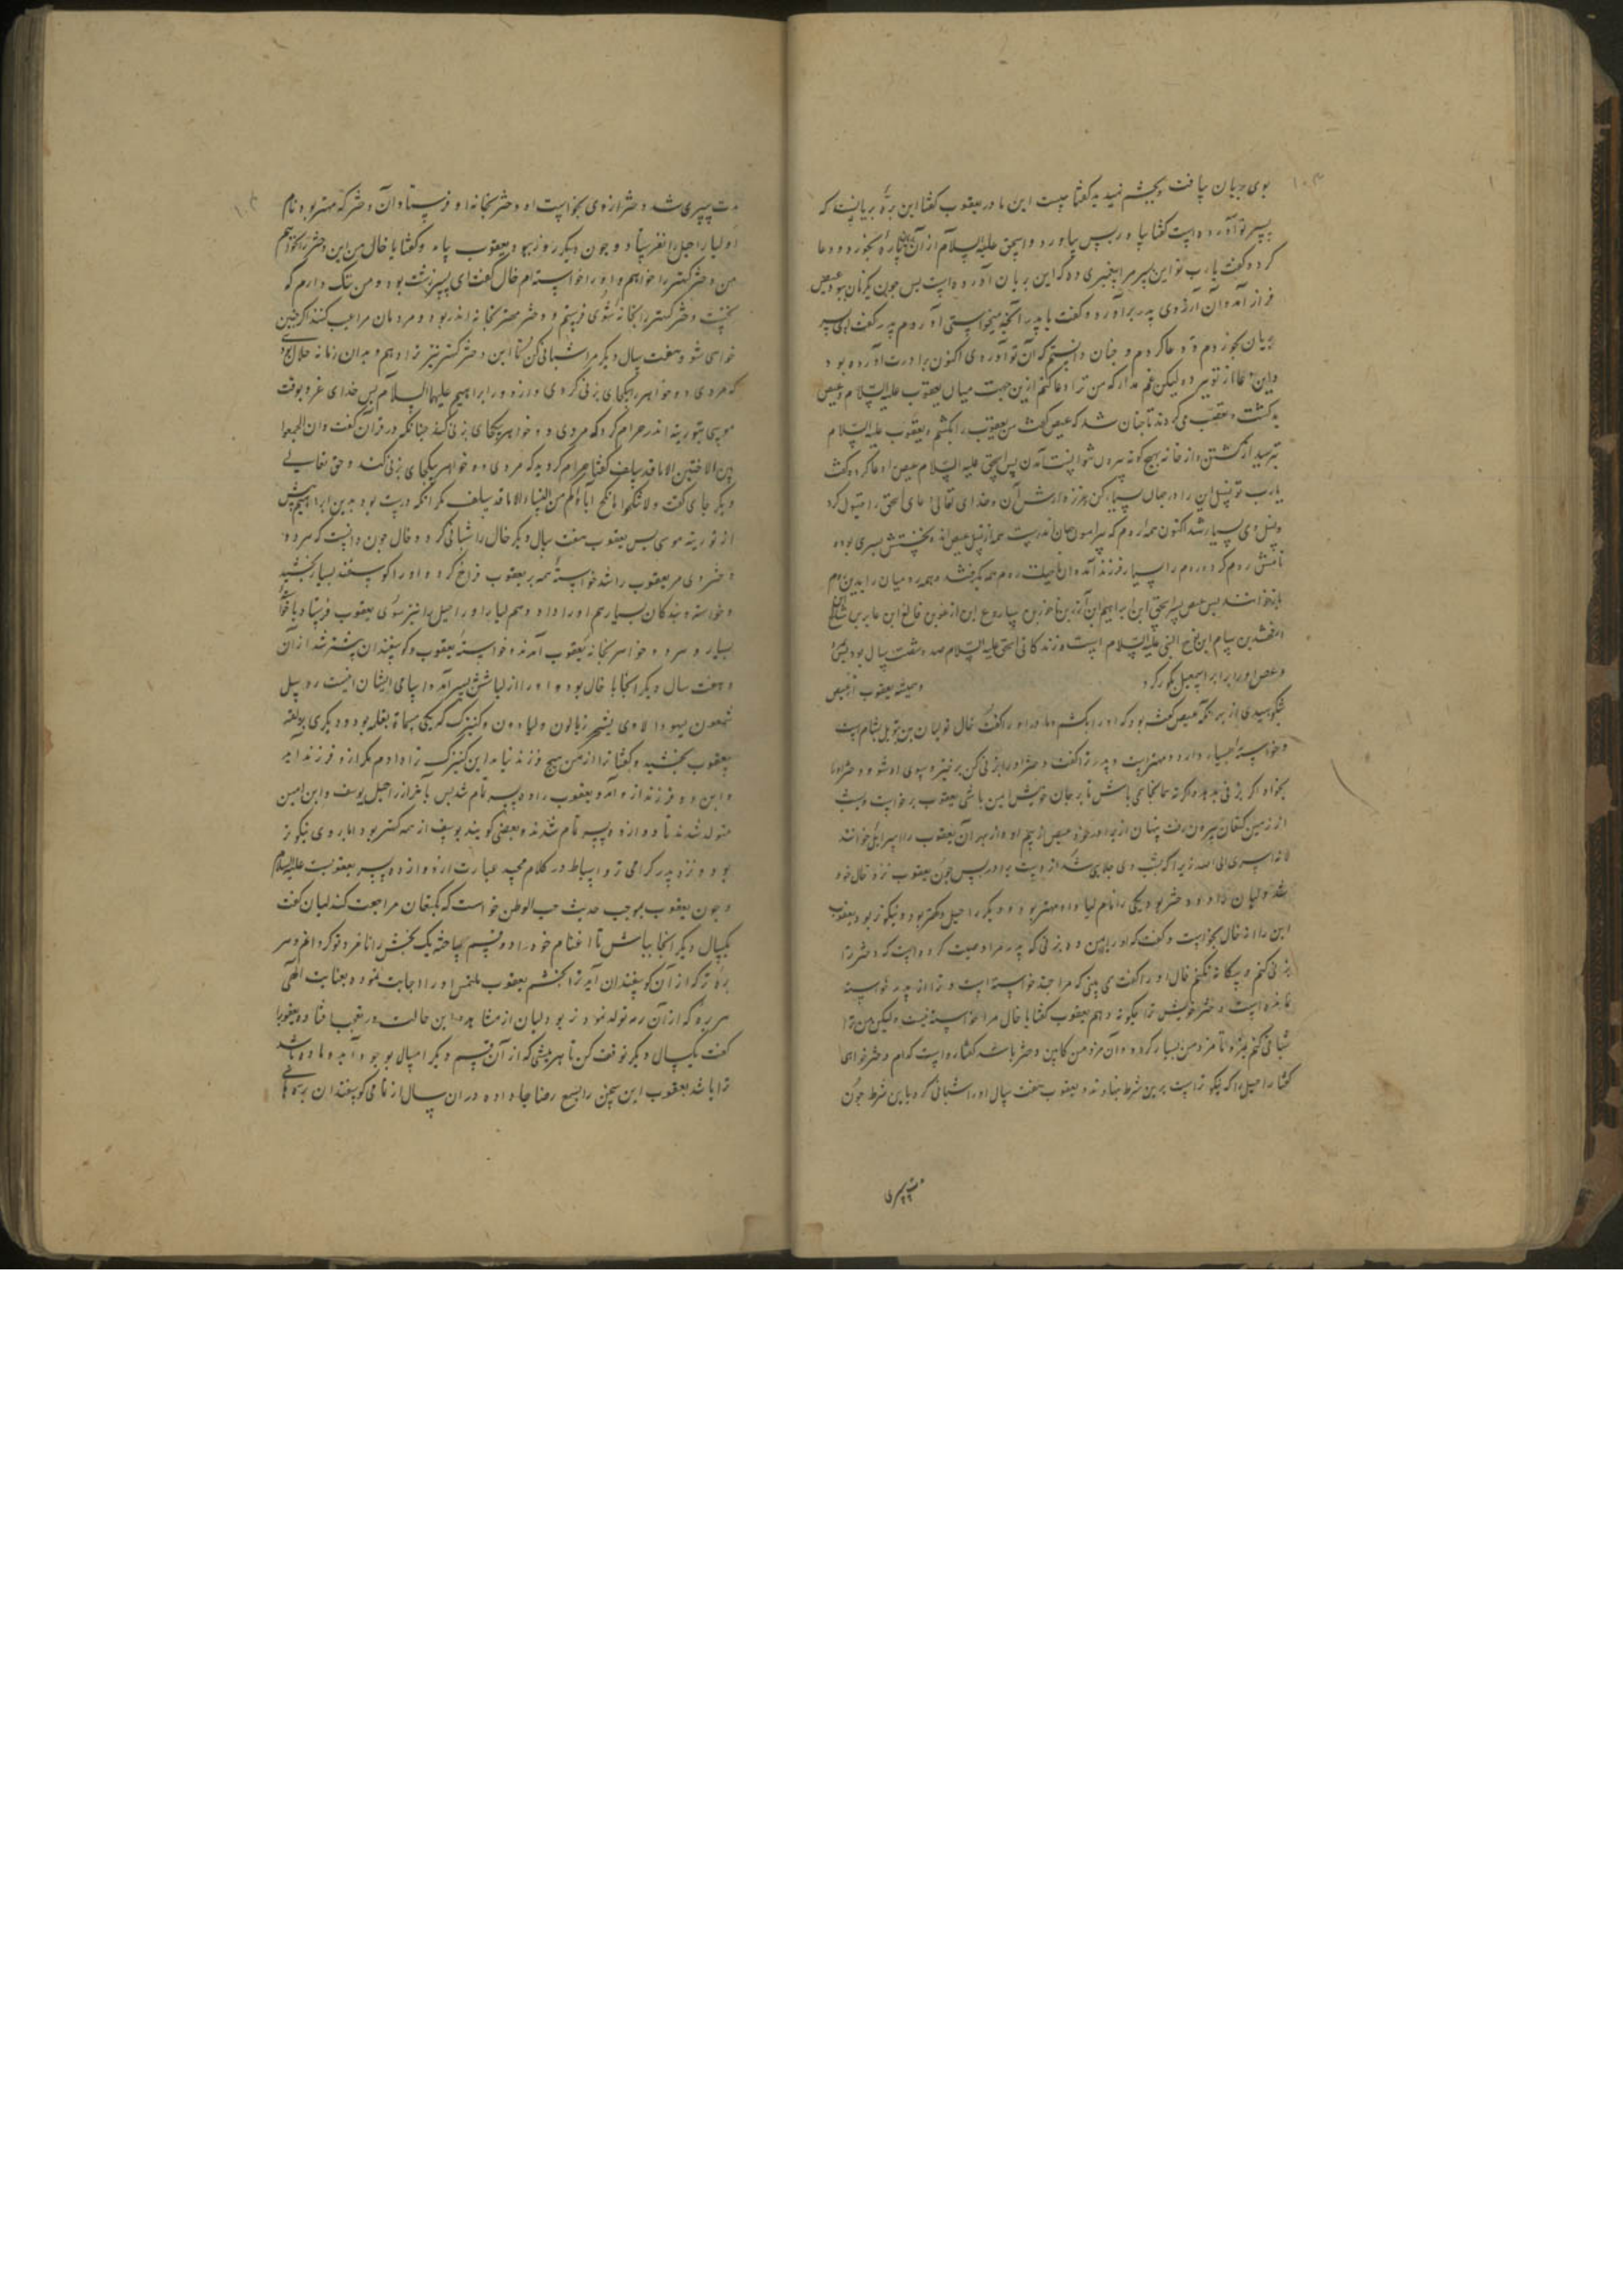 بوی بریان یافت و بچشم نمید ید گفتا چیست این مادر یعقوب گفتا این بره بریانست که
پسر تو آورده است گفتا بیاور پس بیاورد و اسحق علیه السلام از آن بخورد و دعا
کرد و گفت یارب تو این پسر مرا پیغمبری ده که این بریان آورده است پس چون یکزمان بود عیص
فراز آمد و آن آرزوی پدر برآورد و گفت یا پدر آنچه میخواستی آوردم پدر گفت ای پسر
بریان بخوردم و دعا کردم و چنان دانستم که آن تو آوردی اکنون برادرت آورده بود
و این دعا از تو ببرد ولیکن غم مدار که من ترا دعا کنم ازین جهت میان یعقوب علیه السلام و عیص
بد گشت و تعقیب می کردند تا چنان شد که عیص گفت من یعقوب را بکشم و یعقوب علیه السلام
بترسید از کشتن و از خانه بهیچ گونه بیرون نتوانست آمدن پس اسحق علیه السلام عیص را دعا کرد و گفت
یارب تو نسل این را در جهان بسیار کن و خدای تعالی دعای اسحق را قبول کرد
و نسل وی بسیار شد اکنون همه روم که پیرامون جهان اندرست همه از نسل عیص اند و نخستش پسری بود
نامش روم کرد و روم را بسیار فرزند آمد و آن ناحیت روم همه بگرفتند و همه رومیان را بدین روم
بازخوانند پس عیص پسر اسحق ابن ابراهیم ابن آزر بن ناحور بن ساروع ابن ارغو بن فالغ ابن عابر بن شالخ
ارفخشد بن سام ابن نوح النبی علیه السلام است و زندگانی اسحق علیه السلام صد و هشت سال بود
و عیص او را برابر اسمعیل بگور کرد و همیشه یعقوب از عیص
شکوهیدی از بهر آنکه عیص گفته بود که او را بکشم و مادر او را گفت خال تو لیان بن بتویل بشام است
و خواسته بسیار دارد و مهترست و پدر ترا گفت دختر او را بزنی کن برخیز و بسوی او شو و دختر او را
بخواه اگر بزنی بدهد و اگرنه همانجای باش تا بر جان خویش امین باشی یعقوب برخواست و بشب
از زمین کنعان بیرون رفت پنهان از برادر خود عیص از بیم او و از بهر آن یعقوب را اسرائیل خوانند
لانه اسری الی الله زیرا که بشب وی جلای شد از دست برادر پس چون یعقوب نزد خال خود
شد و لیان را دو دختر بود یکی را نام لیا و او مهتر بود و دیگر راحیل و کهتر بود و نیکوتر بود یعقوب
این را از خال بخواست و گفت که او را بمن ده بزنی که پدر مرا وصیت کرده است که دختر ترا
بزنی کنم و بیگانه نکنم خال او را گفت می بینی که مرا چند خواسته است و ترا از پدر خواسته
نمانده است دختر خویش ترا چگونه دهم یعقوب گفتا یا خال مرا خواسته نیست ولیکن من ترا
شبانی کنم بمزد تا مزد من بسیار گردد و آن مزد من کابین دختر باشد گفتا رواست کدام دختر خواهی
گفتا راحیل را که نیکوترست برین شرط بنهادند و یعقوب هفت سال او را شبانی کرد با این شرط چون
مدت سپری
مدت سپری شد دختر از وی بخواست او دختر بخانه او فرستاد آن دختر که مهتر بود نام
او لیا راحیل را نفرستاد و چون دیگر روز ببود یعقوب بیامد و گفتا یا خال من این دختر را نخواهم
من دختر کهتر را خواهم و او را خواسته ام خال گفت ای پسر زشت بود و من ننگ دارم که
نخست دختر کهتر را بخانه شوی فرستم و دختر مهتر بخانه اندر بود و مردمان مرا عیب کنند اگر چنین
خواهی شو و هفت سال دیگر مرا شبانی کن تا این دختر کهتر نیز ترا دهم و بدان زمانه حلال بود
که مردی دو خواهر را بیکجای بزنی کردی و از دور ابراهیم علیه السلام پس خدای عز و جل بوقت
موسی بتوریت اندر حرام کرد که مردی دو خواهر بیکجای بزنی کند چنانکه در قرآن گفت و ان تجمعوا
بین الاختین الا ما قد سلف گفتا حرام کردید که مردی دو خواهر بیکجای بزنی کند و حق تعالی
دیگر جای گفت ولا تنکحوا ما نکح اباؤکم من النساء الا ما قد سلف مگر آنکه درست بود بدین ابراهیم پیش
از توریت موسی پس یعقوب هفت سال دیگر خال را شبانی کرد و خال چون دانست که هر دو
دختر وی مر یعقوب را شد خواسته همه بر یعقوب فراخ کرد و او را گوسفند بسیار بخشید
و خواسته و بندگان بسیار هم او را داد و هم لیا را و راحیل را نیز سوی یعقوب فرستاد با خواسته
بسیار و هر دو خواهر بخانه یعقوب آمدند و خواسته یعقوب و گوسفندان بیشتر شد از آن
و هفت سال دیگر آنجا با خال بود و او را از لیا شش پسر آمد و اسامی ایشان اینست روبیل
شمعون یهودا لاوی یشحر زبالون و لیا دو کنیزک که یکی مسماة بغله بود و دیگری بولفه
یعقوب بخشید و گفتا ترا از من هیچ فرزند نیامد این کنیزک ترا دادم مگر از او فرزند آید
و این دو فرزند از او آمد و یعقوب را ده پسر تمام شد پس بآخر از راحیل یوسف و ابن امین
متولد شدند تا دوازده پسر تمام شدند و بعضی گویند یوسف از همه کهتر بود اما بروی نیکوتر
بود و نزد پدر گرامی تر و اسباط در کلام مجید عبارت از دوازده پسر یعقوبست علیه السلام
و چون یعقوب بموجب حدیث حب الوطن خواست که بکنعان مراجعت کند لیان گفت
یکسال دیگر اینجا بباش تا اغنام خود را دو قسم ساخته یک بخش را نامزد تو کردانم و هر
بره نر که از آن گوسفندان آید ترا بخشم یعقوب ملتمس او را اجابت نمود و بعنایت الهی
هر بره که از آن رمه تولد نمود نر بود و لیان از مشاهده این حالت در تعجب افتاد و یعقوب را
گفت یکسال دیگر توقف کن تا هر میشی که از آن قسم دیگر امسال بوجود آید و ماده باشد
ترا باشد یعقوب این سخن را بسمع رضا جا داده در آن سال از تمامی گوسفندان بره های